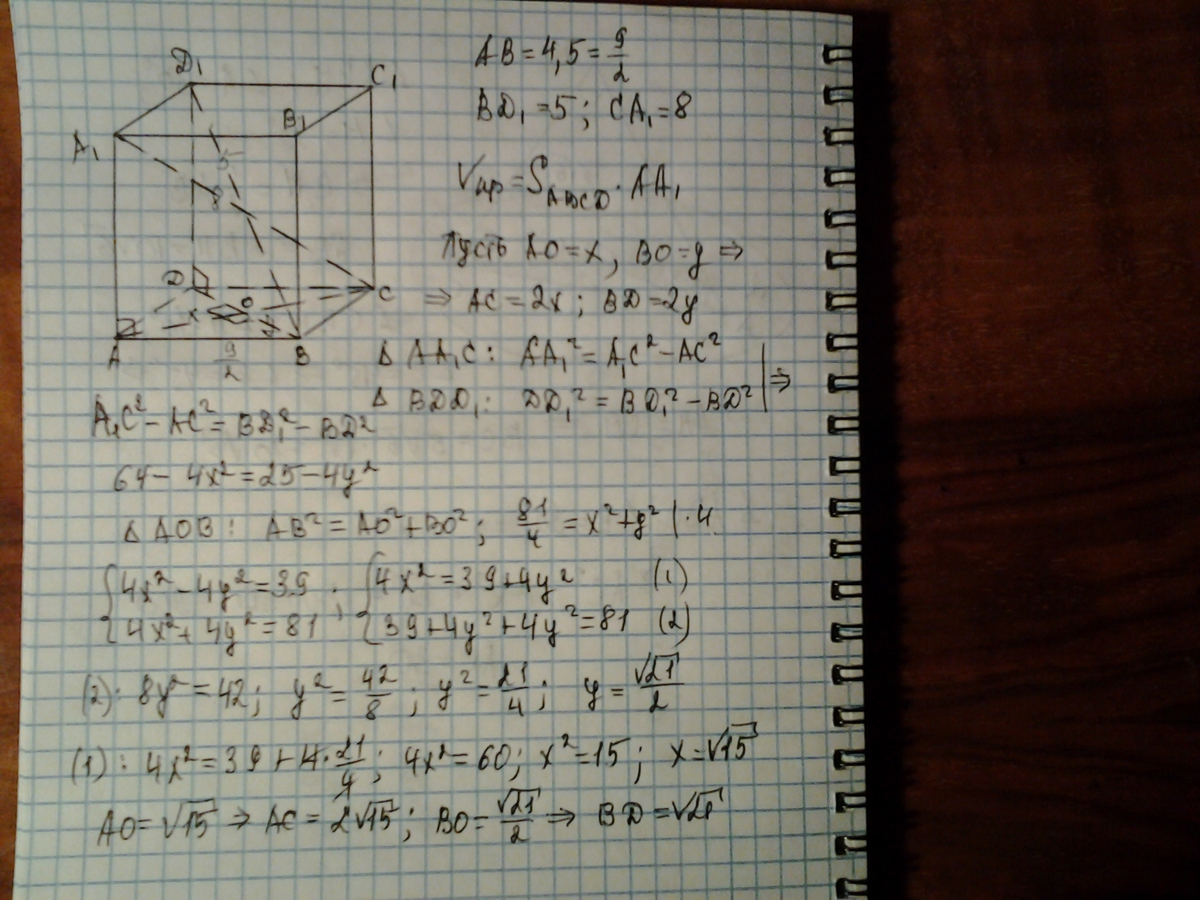 AB = 4,5 = 9/2
BD₁ = 5; CA₁ = 8
Vпр = S_ABCD · AA₁
Пусть AO = x, BO = y ⇒
⇒ AC = 2x; BD = 2y
Δ AA₁C: AA₁² = A₁C² − AC²
Δ BDD₁: DD₁² = BD₁² − BD² | ⇒
D₁
C₁
B₁
A₁
5
8
D
O
C
x
y
A
9/2
B
A₁C² − AC² = BD₁² − BD²
64 − 4x² = 25 − 4y²
Δ AOB: AB² = AO² + BO²; 81/4 = x² + y² | · 4
{4x² − 4y² = 39 ; {4x² = 39 + 4y² (1)
{4x² + 4y² = 81 {39 + 4y² + 4y² = 81 (2)
(2): 8y² = 42; y² = 42/8; y² = 21/4; y = √21/2
(1): 4x² = 39 + 4 · 21/4; 4x² = 60; x² = 15; x = √15
AO = √15 ⇒ AC = 2√15; BO = √21/2 ⇒ BD = √21